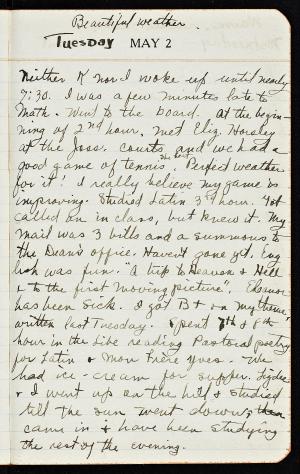 Beautiful weather.
Tuesday MAY 2
Neither K nor I woke up until nearly
7:30. I was a few minutes late to
Math. Went to the board. At the begin-
ning of 2nd hour, met Eliz. Horsley
at the Joss. courts and we had a
good game of tennis. Perfect weather
for it! I really believe my game is
improving. Studied Latin 3rd hour. Got
called on in class, but knew it. My
mail was 3 bills and a summons to
the Dean's office. Haven't gone yet. Eng-
lish was fun. "A trip to Heaven & Hell
& to the first moving picture". Eleanor
has been sick. I got B+ on my theme,
written last Tuesday. Spent 7th & 8th
hour in the Libe reading Pastoral poetry
for Latin & Mon Frère Yves. We
had ice-cream for supper.
& I went up on the hill & studied
till the sun went down, then
came in & have been studying
the rest of the evening.